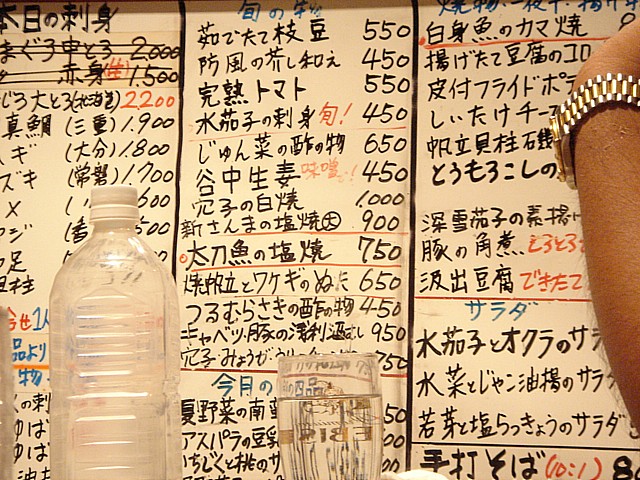 本日の刺身
まぐろ中とろ 2.000
赤身 1.500
2200
真鯛 (三重) 1.900
ギ (大分) 1.800
ズキ (常磐) 1.700
600
500
旬の
茹でたて枝豆 550
防風の芥し和え 450
完熟トマト 550
水茄子の刺身 旬! 450
じゅん菜の酢の物 650
谷中生姜 味噌! 450
穴子の白焼 1.000
新さんまの塩焼 大 900
太刀魚の塩焼 750
焼帆立とワケギのぬた 650
つるむらさきの酢の物 450
キャベツと豚の浅利酒むし 950
穴子・みょうが 750
今月の
夏野菜の南蛮
アスパラの豆乳
いちじくと桃の
白身魚のカマ焼
揚げたて豆腐のコロ
皮付フライドポテ
しいたけチー
帆立貝柱石
とうもろこしの
深雪茄子の素揚げ
豚の角煮 とろとろ
汲出豆腐 できたて
サラダ
水茄子とオクラのサラ
水菜とじゃこ油揚のサラ
若芽と塩らっきょうのサラダ
手打そば (10:1) 8